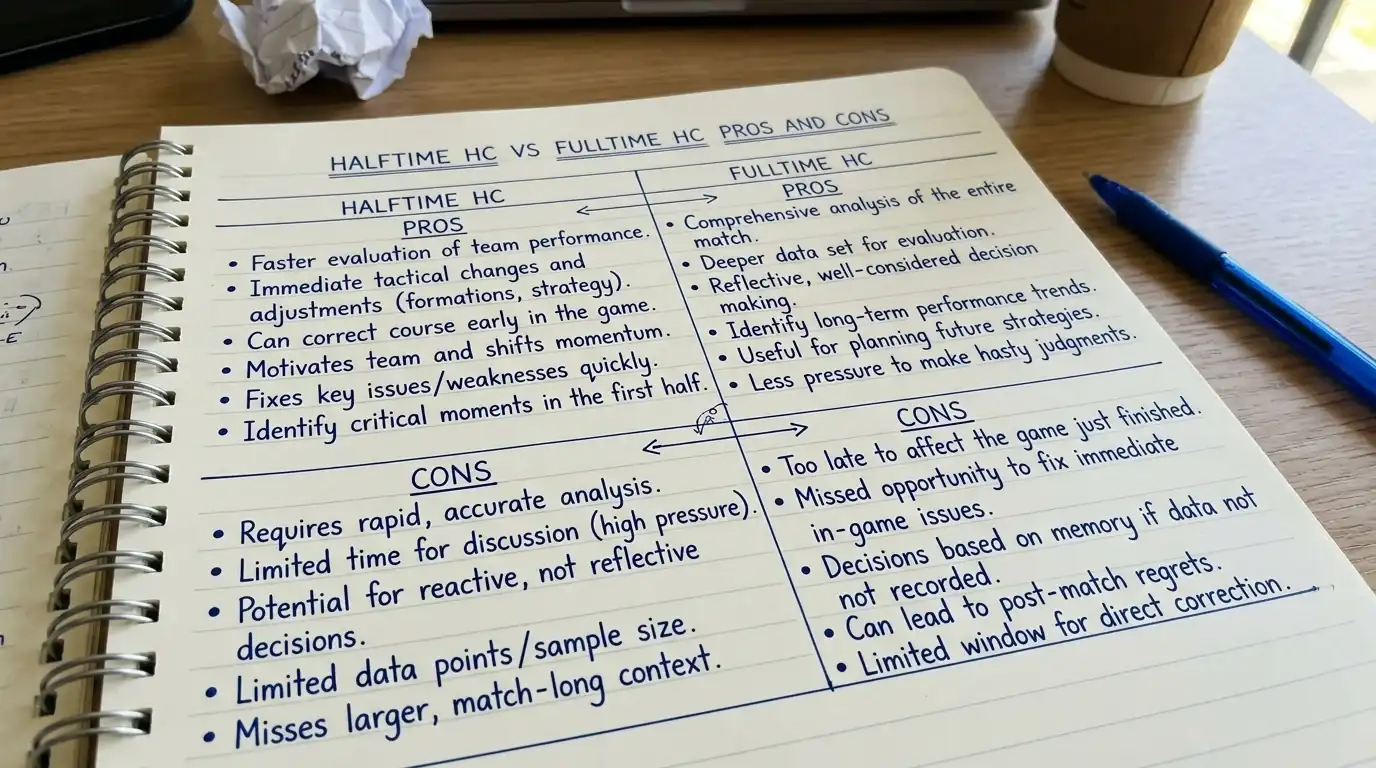 HALFTIME HC VS FULLTIME HC PROS AND CONS
HALFTIME HC
PROS
• Faster evaluation of team performance.
• Immediate tactical changes and
adjustments (formations, strategy).
• Can correct course early in the game.
• Motivates team and shifts momentum.
• Fixes key issues/weaknesses quickly.
• Identify critical moments in the first half.
FULLTIME HC
PROS
• Comprehensive analysis of the entire
match.
• Deeper data set for evaluation.
• Reflective, well-considered decision
making.
• Identify long-term performance trends.
• Useful for planning future strategies.
• Less pressure to make hasty judgments.
CONS
• Requires rapid, accurate analysis.
• Limited time for discussion (high pressure).
• Potential for reactive, not reflective
decisions.
• Limited data points/sample size.
• Misses larger, match-long context.
CONS
• Too late to affect the game just finished.
• Missed opportunity to fix immediate
in-game issues.
• Decisions based on memory if data not
not recorded.
• Can lead to post-match regrets.
• Limited window for direct correction.